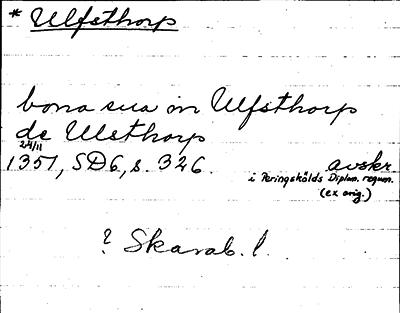 * Ulfsthorp
bona sua in Ulfsthorp
de Ulsthorp
24/11
1351, SD6, s. 326. avskr.
i Peringskölds Diplom. regum.
(ex orig.)
? Skarab. l.